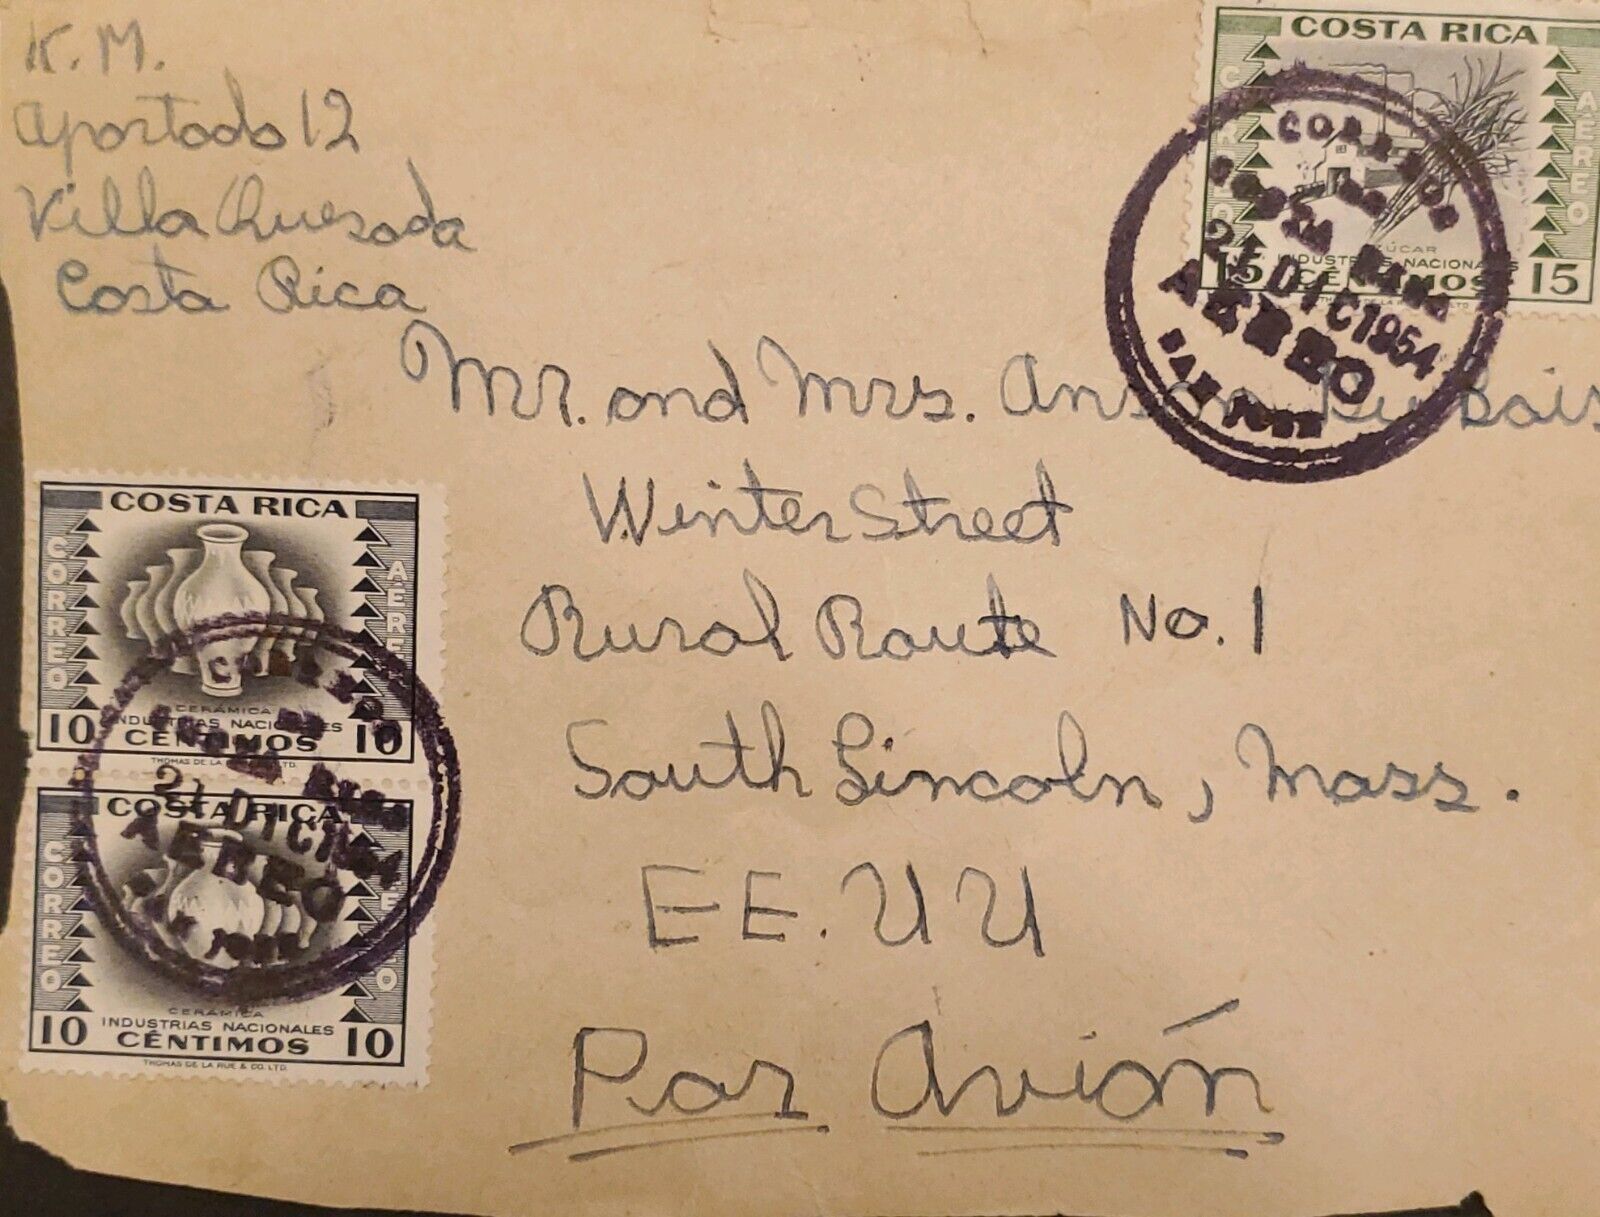 K. M.
Apartado 12
Villa Quesada
Costa Rica
COSTA RICA
CORREO
AEREO
AZÚCAR
INDUSTRIAS NACIONALES
15 CÉNTIMOS 15
CORREOS
DE
COSTA RICA
DIC 1954
AEREO
SAN JOSE
Mr. and Mrs.
Winter Street
Rural Route No. 1
South Lincoln, Mass.
EE. UU
Por Avión
COSTA RICA
CORREO
AEREO
CERÁMICA
INDUSTRIAS NACIONALES
10 CÉNTIMOS 10
THOMAS DE LA LTD.
COSTA RICA
CORREO
CERÁMICA
INDUSTRIAS NACIONALES
10 CÉNTIMOS 10
THOMAS DE LA RUE & CO. LTD.
DIC
AEREO
JOSE